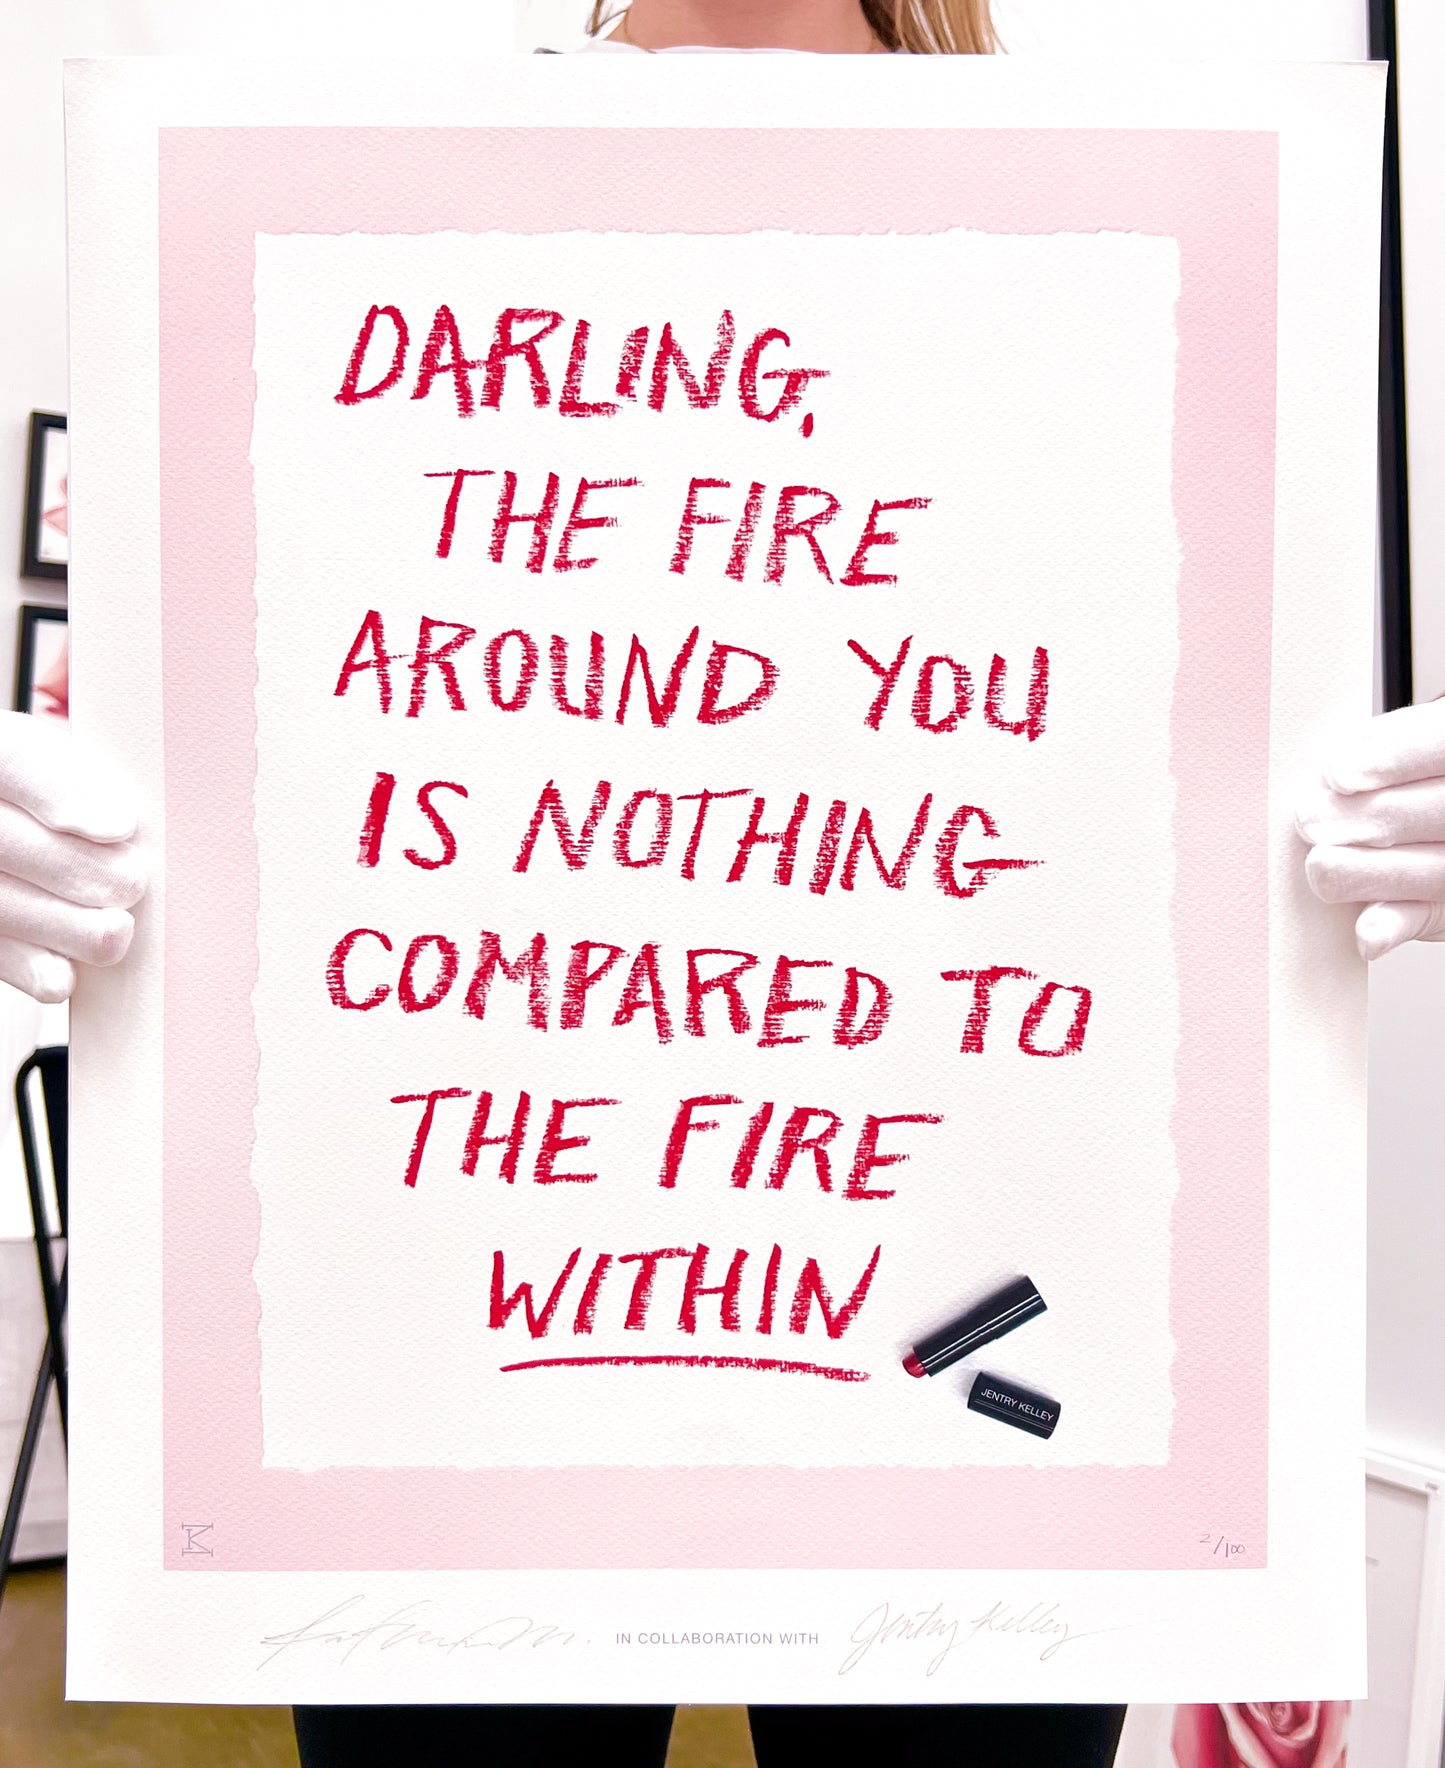 DARLING,
THE FIRE
AROUND YOU
IS NOTHING
COMPARED TO
THE FIRE
WITHIN
JENTRY KELLEY
K
2/100
IN COLLABORATION WITH Jentry Kelley